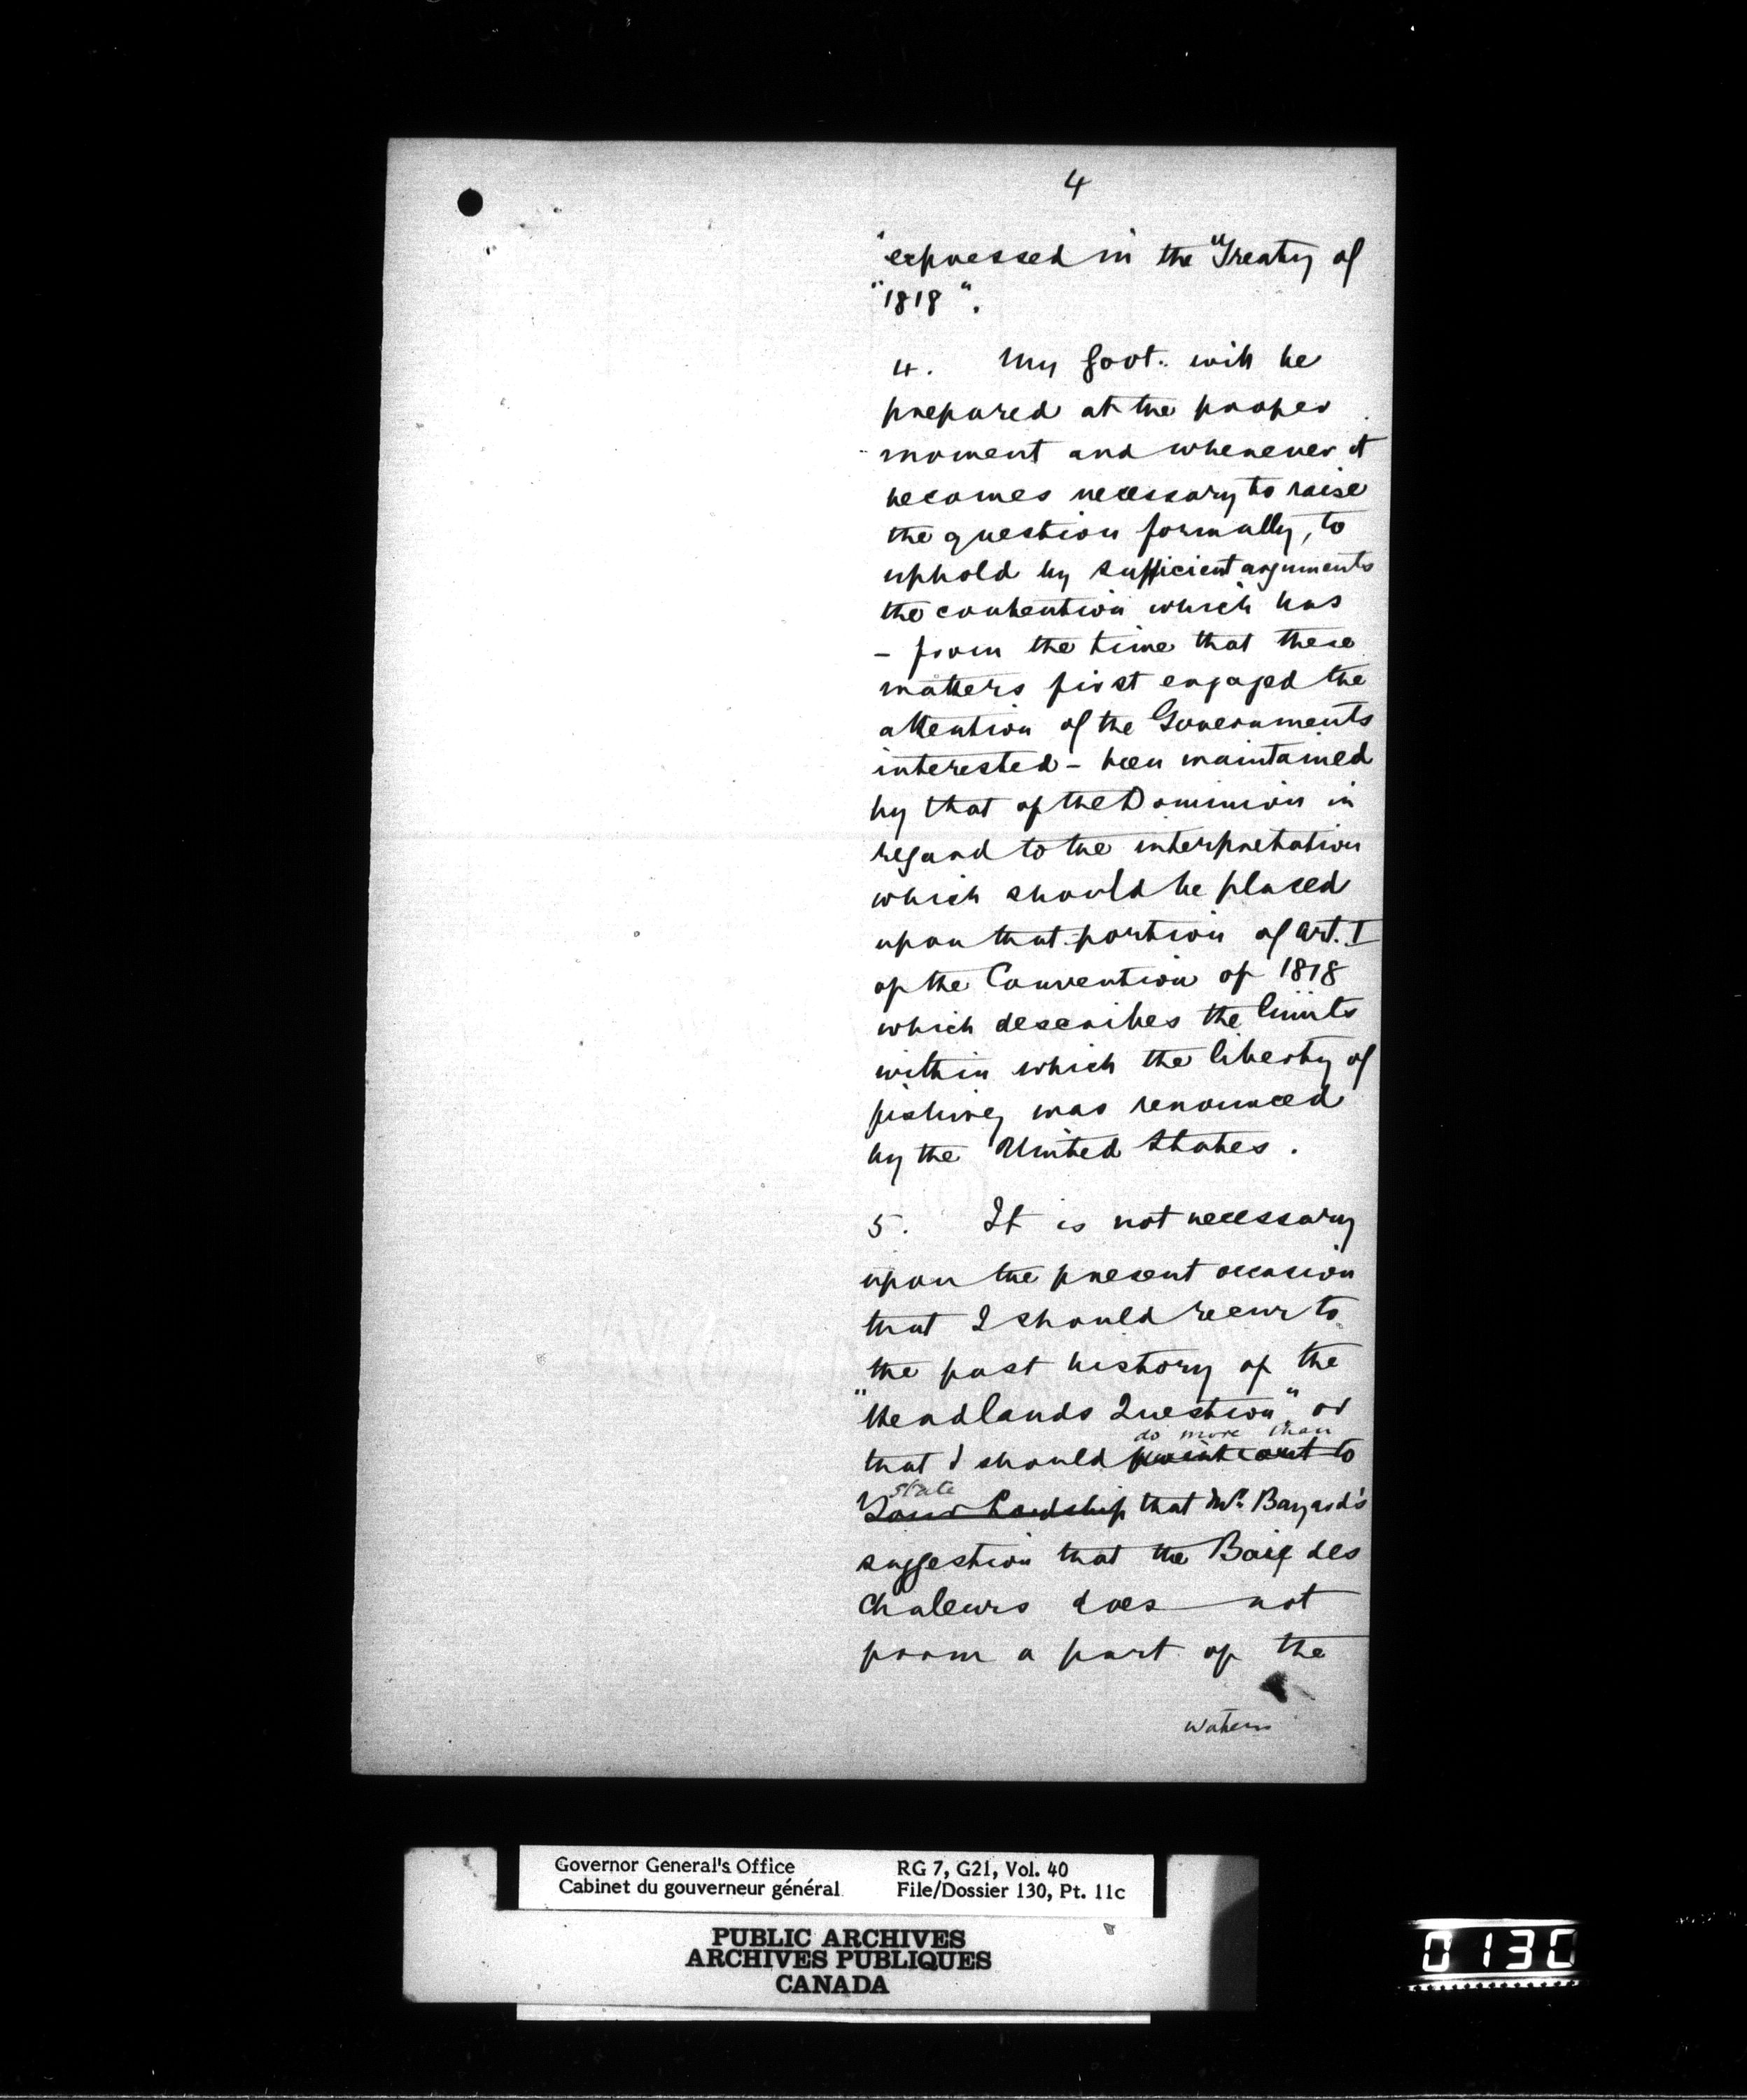 4
"expressed in the "Treaty of
"1818".
4. My Govt. will be
prepared at the proper
moment and whenever it
becomes necessary to raise
the question formally, to
uphold by sufficient arguments
the contention which has
- from the time that these
matters first engaged the
attention of the Governments
interested - been maintained
by that of the Dominion in
regard to the interpretation
which should be placed
upon that portion of Art. I
of the Convention of 1818
which describes the limits
within which the liberty of
fishing was renounced
by the United States.
5. It is not necessary
upon the present occasion
that I should recur to
the past history of the
"Headlands Question" or
do more than
that I should point out to
state
Your Lordship that Mr. Bayard's
suggestion that the Baie des
Chaleurs does not
form a part of the
waters
Governor General's Office
Cabinet du gouverneur général
RG 7, G21, Vol. 40
File/Dossier 130, Pt. 11c
PUBLIC ARCHIVES
ARCHIVES PUBLIQUES
CANADA
0130